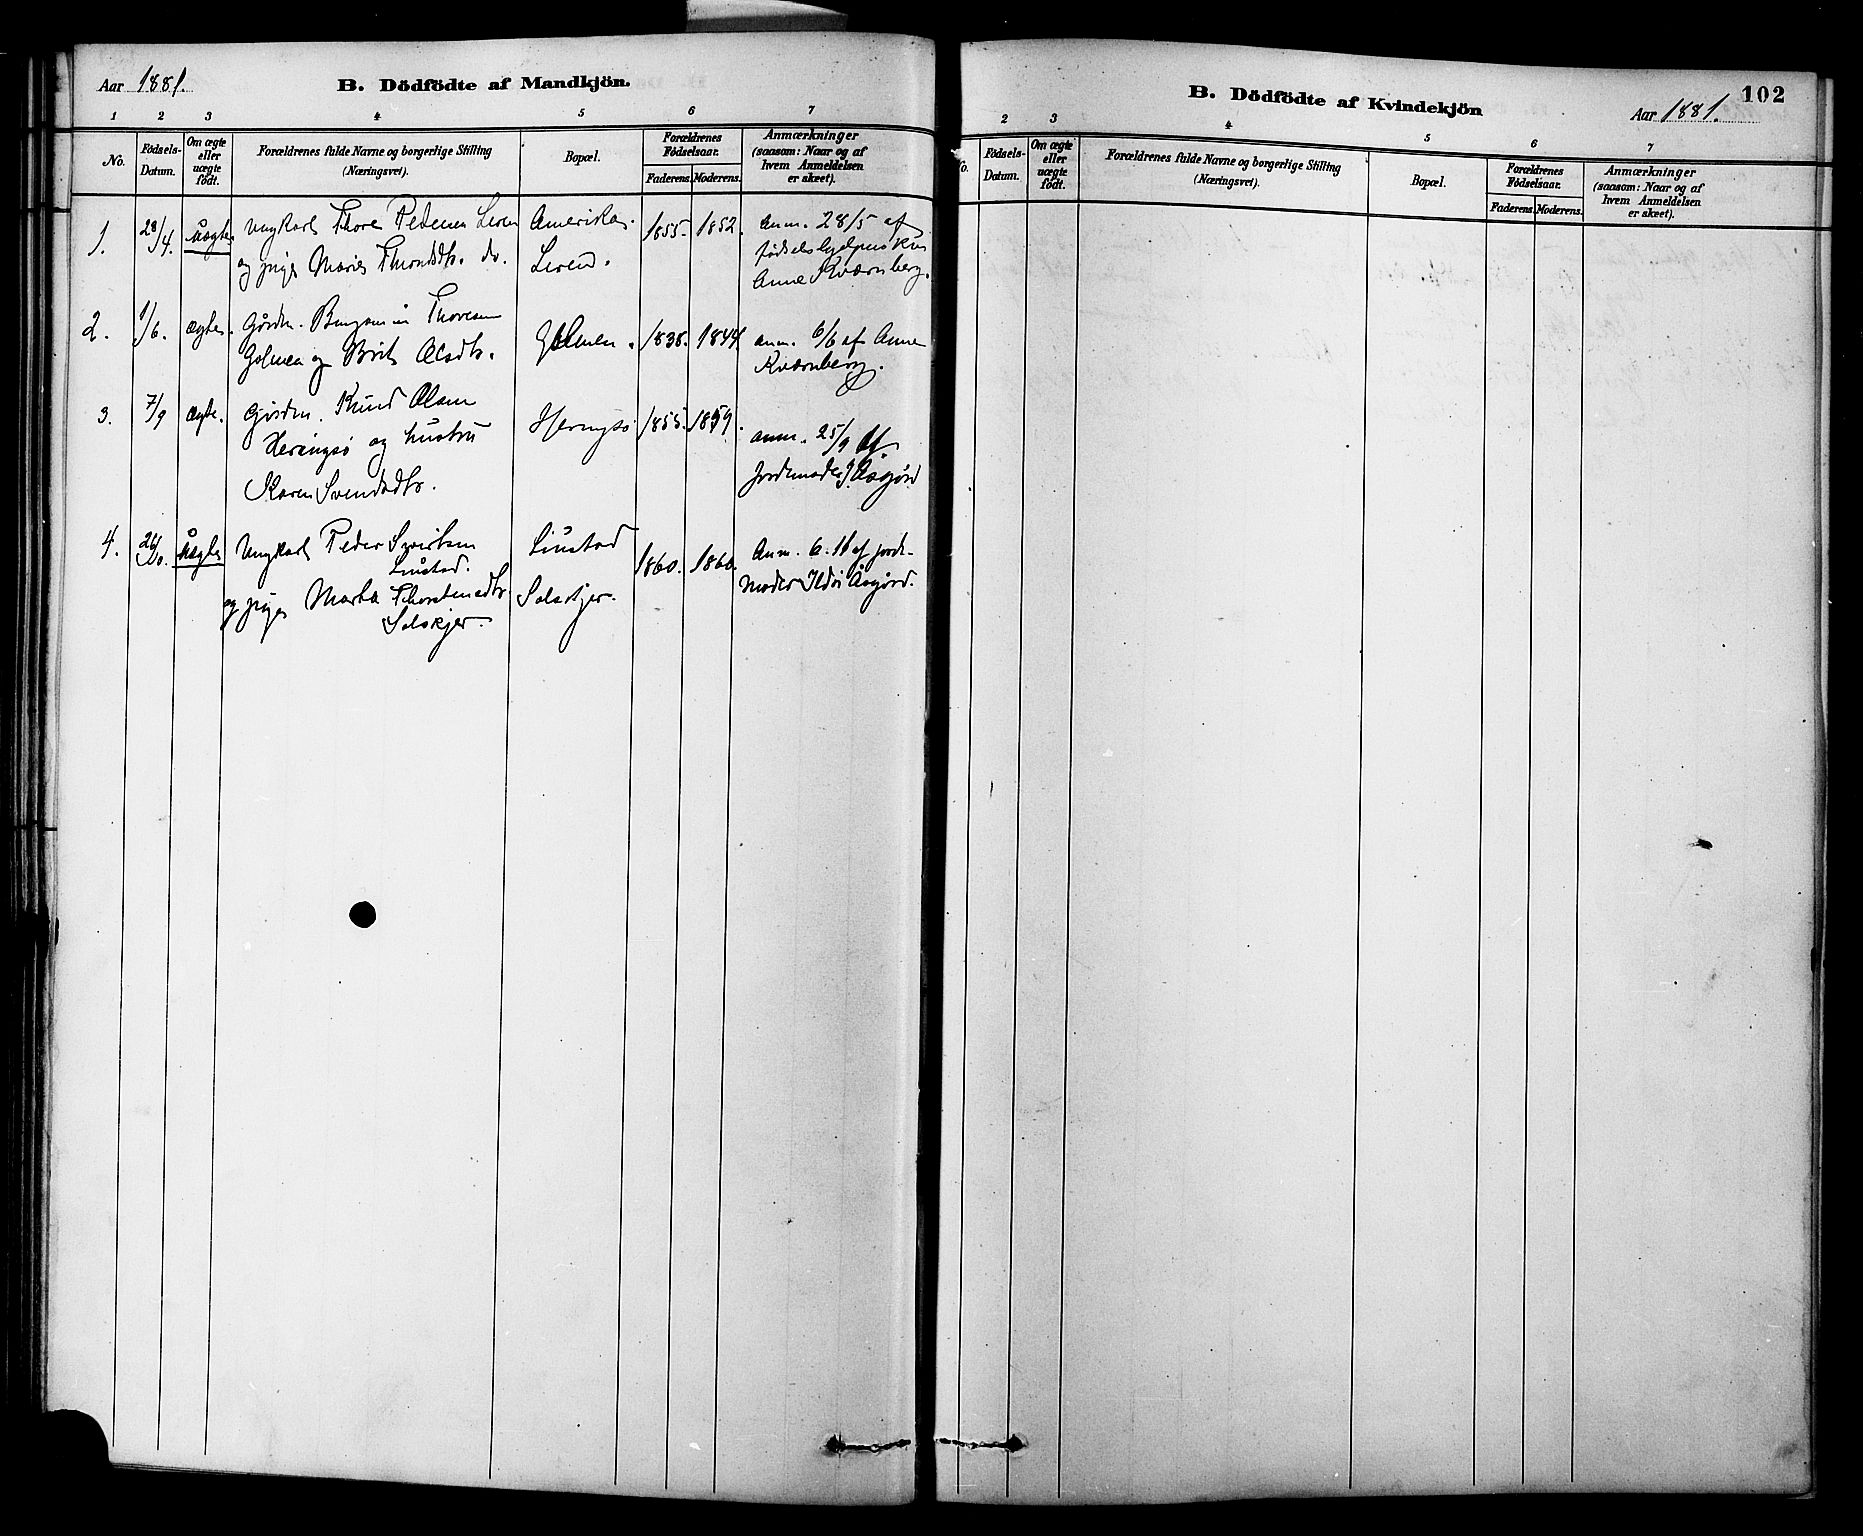 Aar 1881.
B. Dödfödte af Mandkjön.
1 2 3 4 5 6 7
No.
Födsels-
Datum.
Om ægte
eller
uægte
födt.
Forældrenes fulde Navne og borgerlige Stilling
(Næringsvei).
Bopæl.
Forældrenes
Födselsaar.
Faderens. Moderens.
Anmærkninger
(saasom: Naar og af
hvem Anmeldelsen
er skeet).
1. 28/4. uægte Ungkarl Thore Pedersen Leren Amerika. 1855. 1852. Anm. 28/5 af
og pige Marie do. Leren. fødselshjelpersken
Anne Kværnberg.
2. 1/6. ægte. Gårdm. Benjamin Thoresen Golmen. 1838. 1844. anm. 6/6 af Anne
Golmen og Brit Olsdtr. Kværnberg.
3. 7/9 ægte. Gårdm. Knud Olsen Heringsø 1855. 1859. anm. 25/9 af
Heringsø og hustru
Karen Svendsdtr. jordemoder I. Åsgård
4. uægte Ungkarl Peder Sivertsen Liustad 1860. 1860. Anm. 6.11 af jorde-
Liustad.
og pige Marta Thorstensdtr. Solskjer. moder Ildri Åsgård.
Solskjer.
102
B. Dödfödte af Kvindekjön
Aar 1881.
2 3 4 5 6 7
No.
Födsels-
Datum.
Om ægte
eller
uægte
födt.
Forældrenes fulde Navne og borgerlige Stilling
(Næringsvei).
Bopæl.
Forældrenes
Födselsaar.
Faderens. Moderens.
Anmærkninger
(saasom: Naar og af
hvem Anmeldelsen
er skeet).